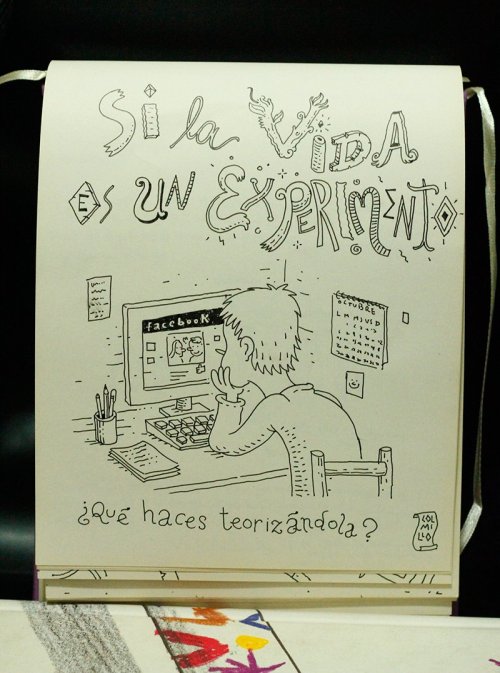 Si la VIDA
Es UN EXPERIMENTO
facebook
OCTUBRE
L M M J V S D
¿Qué haces teorizándola?
COL
MI
LLO